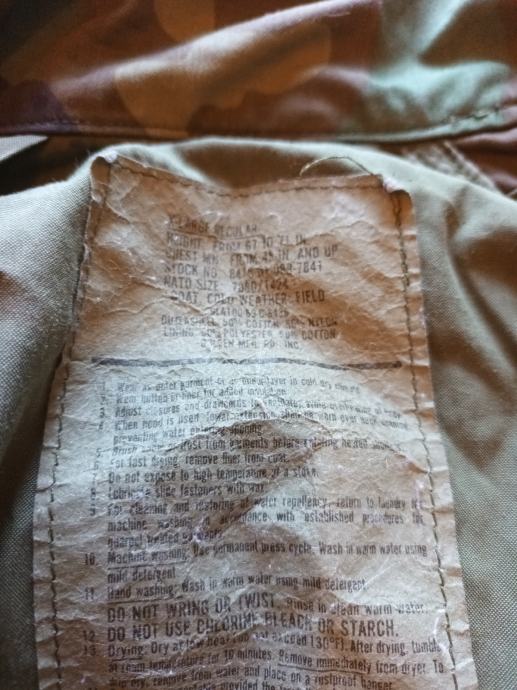 X-LARGE-REGULAR
HEIGHT: FROM 67 TO 71 IN.
CHEST MN: FROM 45 IN. AND UP
STOCK NO. 8415-01-099-7841
NATO SIZE 7080/1424
COAT, COLD WEATHER, FIELD
COTTON
MFG. CO. INC
1. Wear as outer garment or as layer in cold dry climate
2. Wear button-in liner for added insulation
3. Adjust closures and drawcords to
4. When hood is used, lower extension should be worn over
preventing water entering opening
5. Brush frost from garments before entering heated
6. For fast drying, remove liner from coat.
7. Do not expose to high temperature of a stove.
8. Lubricate slide fasteners with wax.
9. For cleaning and restoring of water repellency, return to laundry for
machine washing in accordance with established procedures for
quarpel treated
10. Machine washing: Use permanent press cycle. Wash in warm water using
mild detergent.
11. Hand washing: Wash in warm water using mild detergent.
DO NOT WRING OR TWIST. Rinse in clean warm water.
12. DO NOT USE CHLORINE BLEACH OR STARCH.
13. Drying: Dry at low heat (do not exceed 130°F). After drying, tumble
at room temperature for 10 minutes. Remove immediately from dryer. To
drip dry, remove from water and place on a rustproof hanger.
provided the